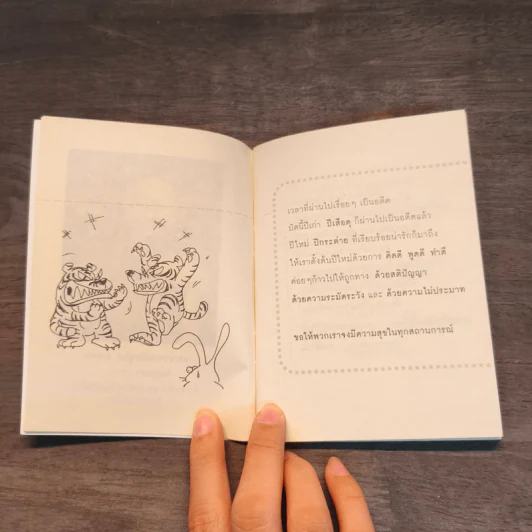 เวลาที่ผ่านไปเรื่อยๆ เป็นอดีต
บัดนี้ปีเก่า ปีเสือดุ ก็ผ่านไปเป็นอดีตแล้ว
ปีใหม่ ปีกระต่าย ที่เรียบร้อยน่ารักก็มาถึง
ให้เราตั้งต้นปีใหม่ด้วยการ คิดดี พูดดี ทำดี
ค่อยๆก้าวไปให้ถูกทาง ด้วยสติปัญญา
ด้วยความระมัดระวัง และ ด้วยความไม่ประมาท
ขอให้พวกเราจงมีความสุขในทุกสถานการณ์